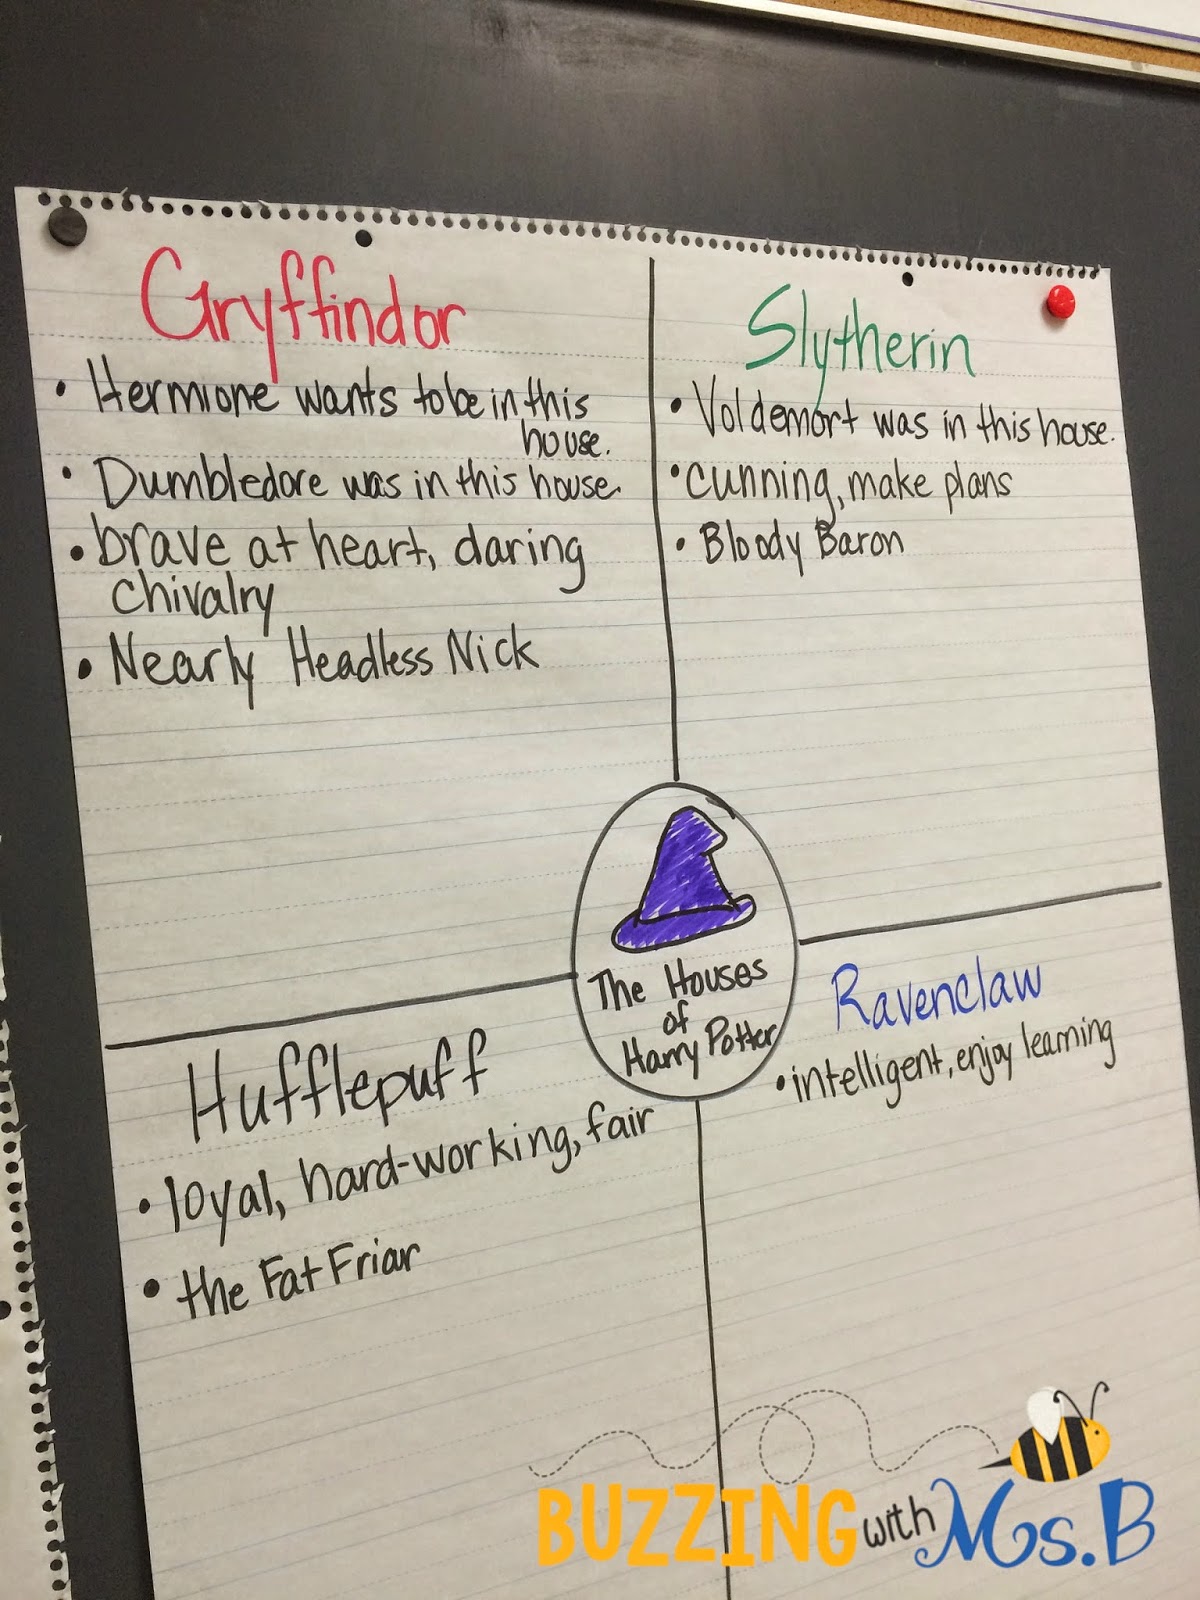 Gryffindor
• Hermione wants to be in this
house.
• Dumbledore was in this house.
• brave at heart, daring
chivalry
• Nearly Headless Nick
Slytherin
• Voldemort was in this house.
• cunning, make plans
• Bloody Baron
The Houses
of
Harry Potter
Hufflepuff
• loyal, hard-working, fair
• the Fat Friar
Ravenclaw
• intelligent, enjoy learning
BUZZING with Ms. B